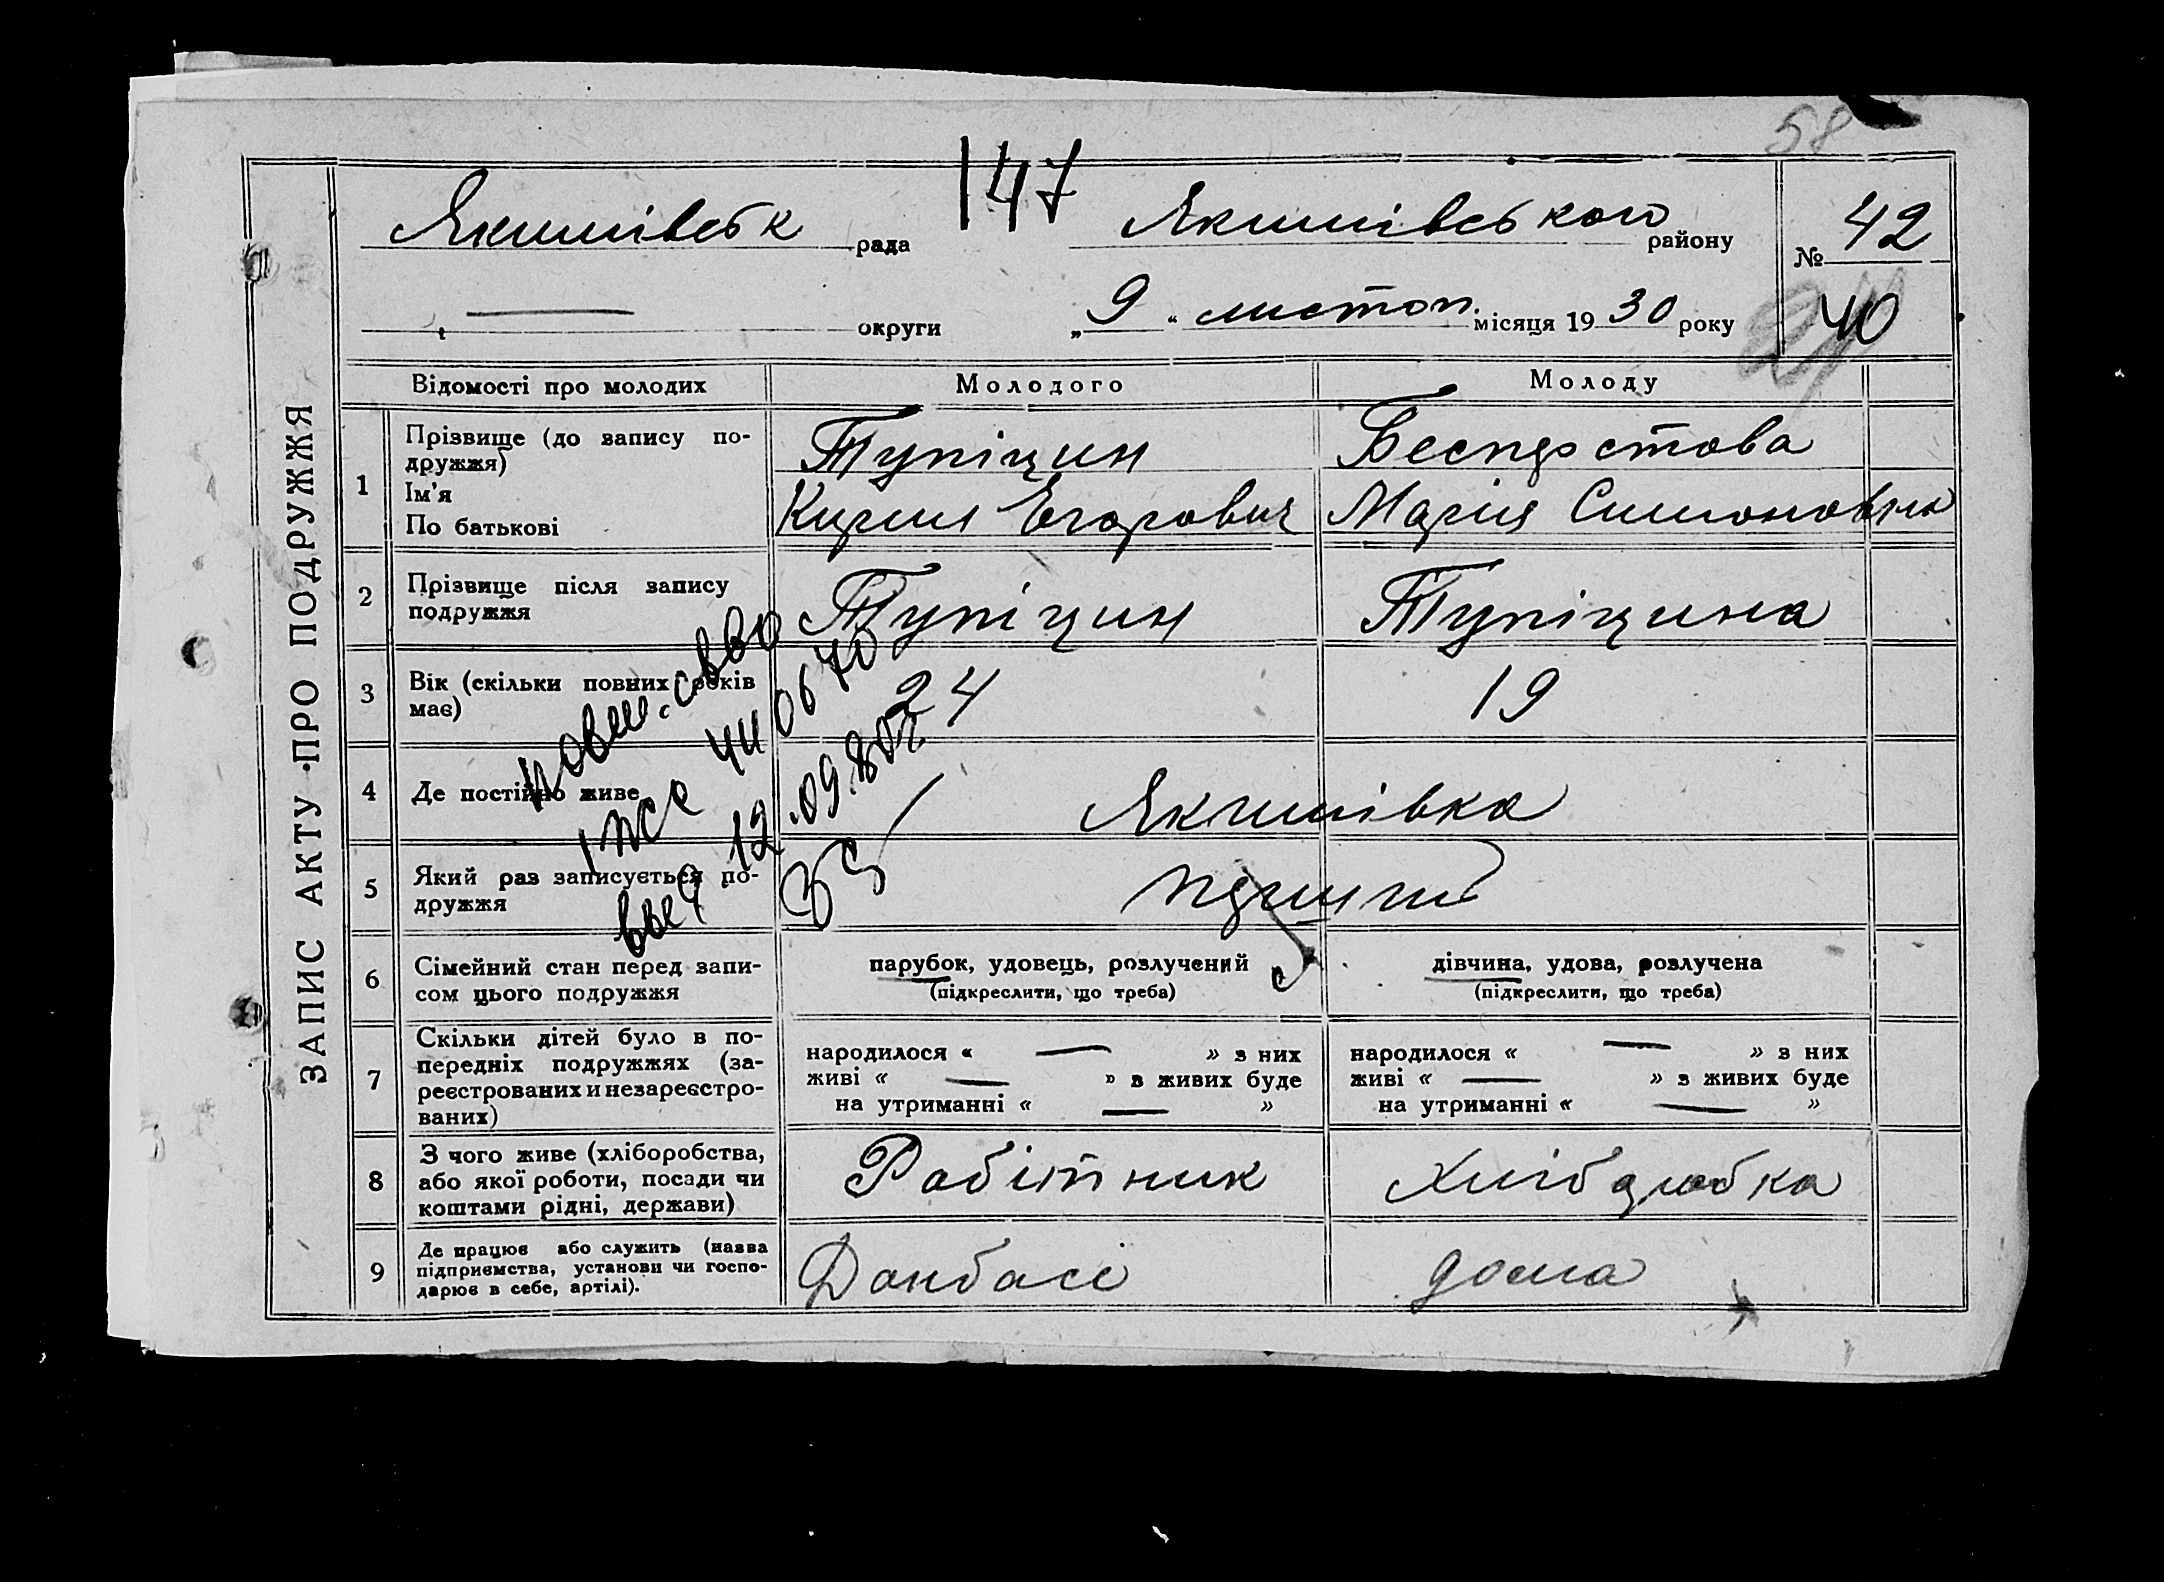 58
147
Якимівськ рада Якимівського району № 42
округи „9“ листоп. місяця 1930 року 40
ЗАПИС АКТУ ПРО ПОДРУЖЖЯ
Відомості про молодих Молодого Молоду
1 Прізвище (до запису по-
дружжя) Тупіцин
Ім'я
По батькові Кирил Егорович Марія Симоновна
2 Прізвище після запису
подружжя Тупіцин Тупіцина
3 Вік (скільки повних років
має) 24 19
4 Де постійно живе Якимівка
5 Який раз записується по-
дружжя перший
6 Сімейний стан перед запи-
сом цього подружжя парубок, удовець, розлучений дівчина, удова, розлучена
(підкреслити, що треба) (підкреслити, що треба)
7 Скільки дітей було в по-
передніх подружжях (за-
реєстрованих и незареєстро-
ваних)
народилося « — » з них народилося « — » з них
живі « — » з живих буде живі « — » з живих буде
на утриманні « — » на утриманні « — »
8 З чого живе (хліборобства,
або якої роботи, посади чи
коштами рідні, держави) Робітник Хлібаробка
9 Де працює або служить (назва
підприємства, установи чи госпо-
дарює в себе, артілі). Донбасі дома
повт. св-во
440670
12.09.80г.